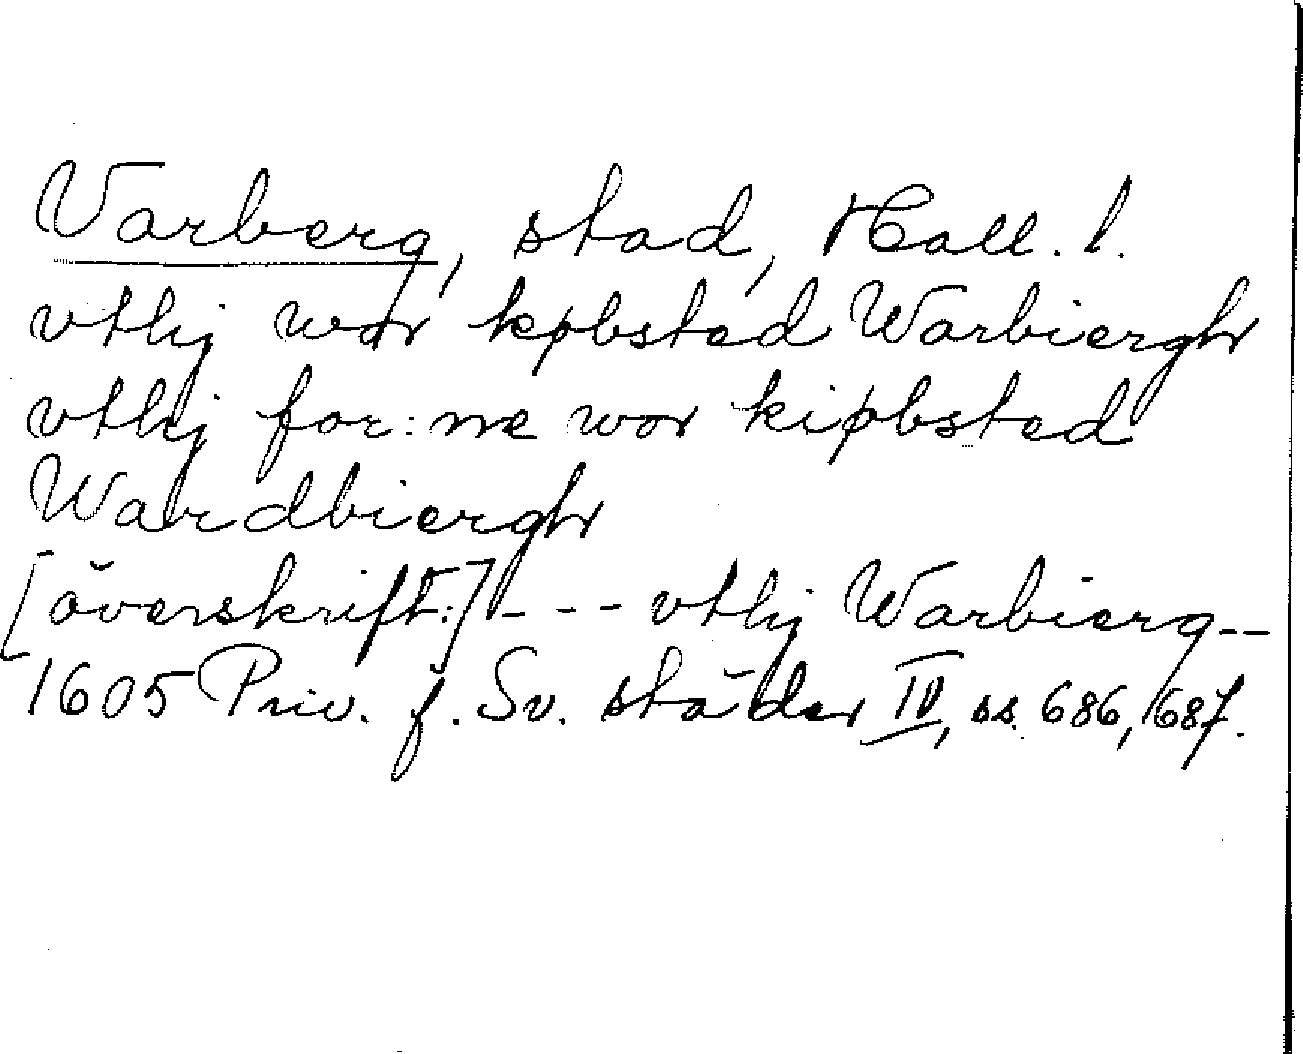 Varberg, stad, Hall. l.
vthj wor købsted Warbiergh
vthj for:ne wor kiøbsted
Wardbiergh
[överskift:] --- vthj Warbierg--
1605 Priv. f. Sv. städer IV, ss. 686, 687.